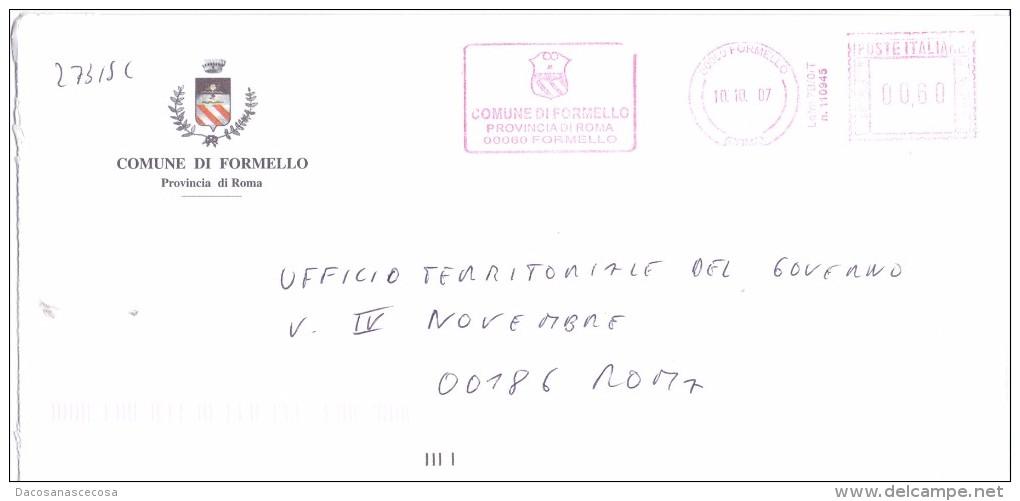 2731SC
COMUNE DI FORMELLO
Provincia di Roma
COMUNE DI FORMELLO
PROVINCIA DI ROMA
00060 FORMELLO
00060 FORMELLO
10.10. 07
(ROMA)
n. 110945
POSTE ITALIANE
00,60
UFFICIO TERRITORIALE DEL GOVERNO
V. IV NOVEMBRE
00186 ROMA
Dacosanascecosa
www.delcampe.net